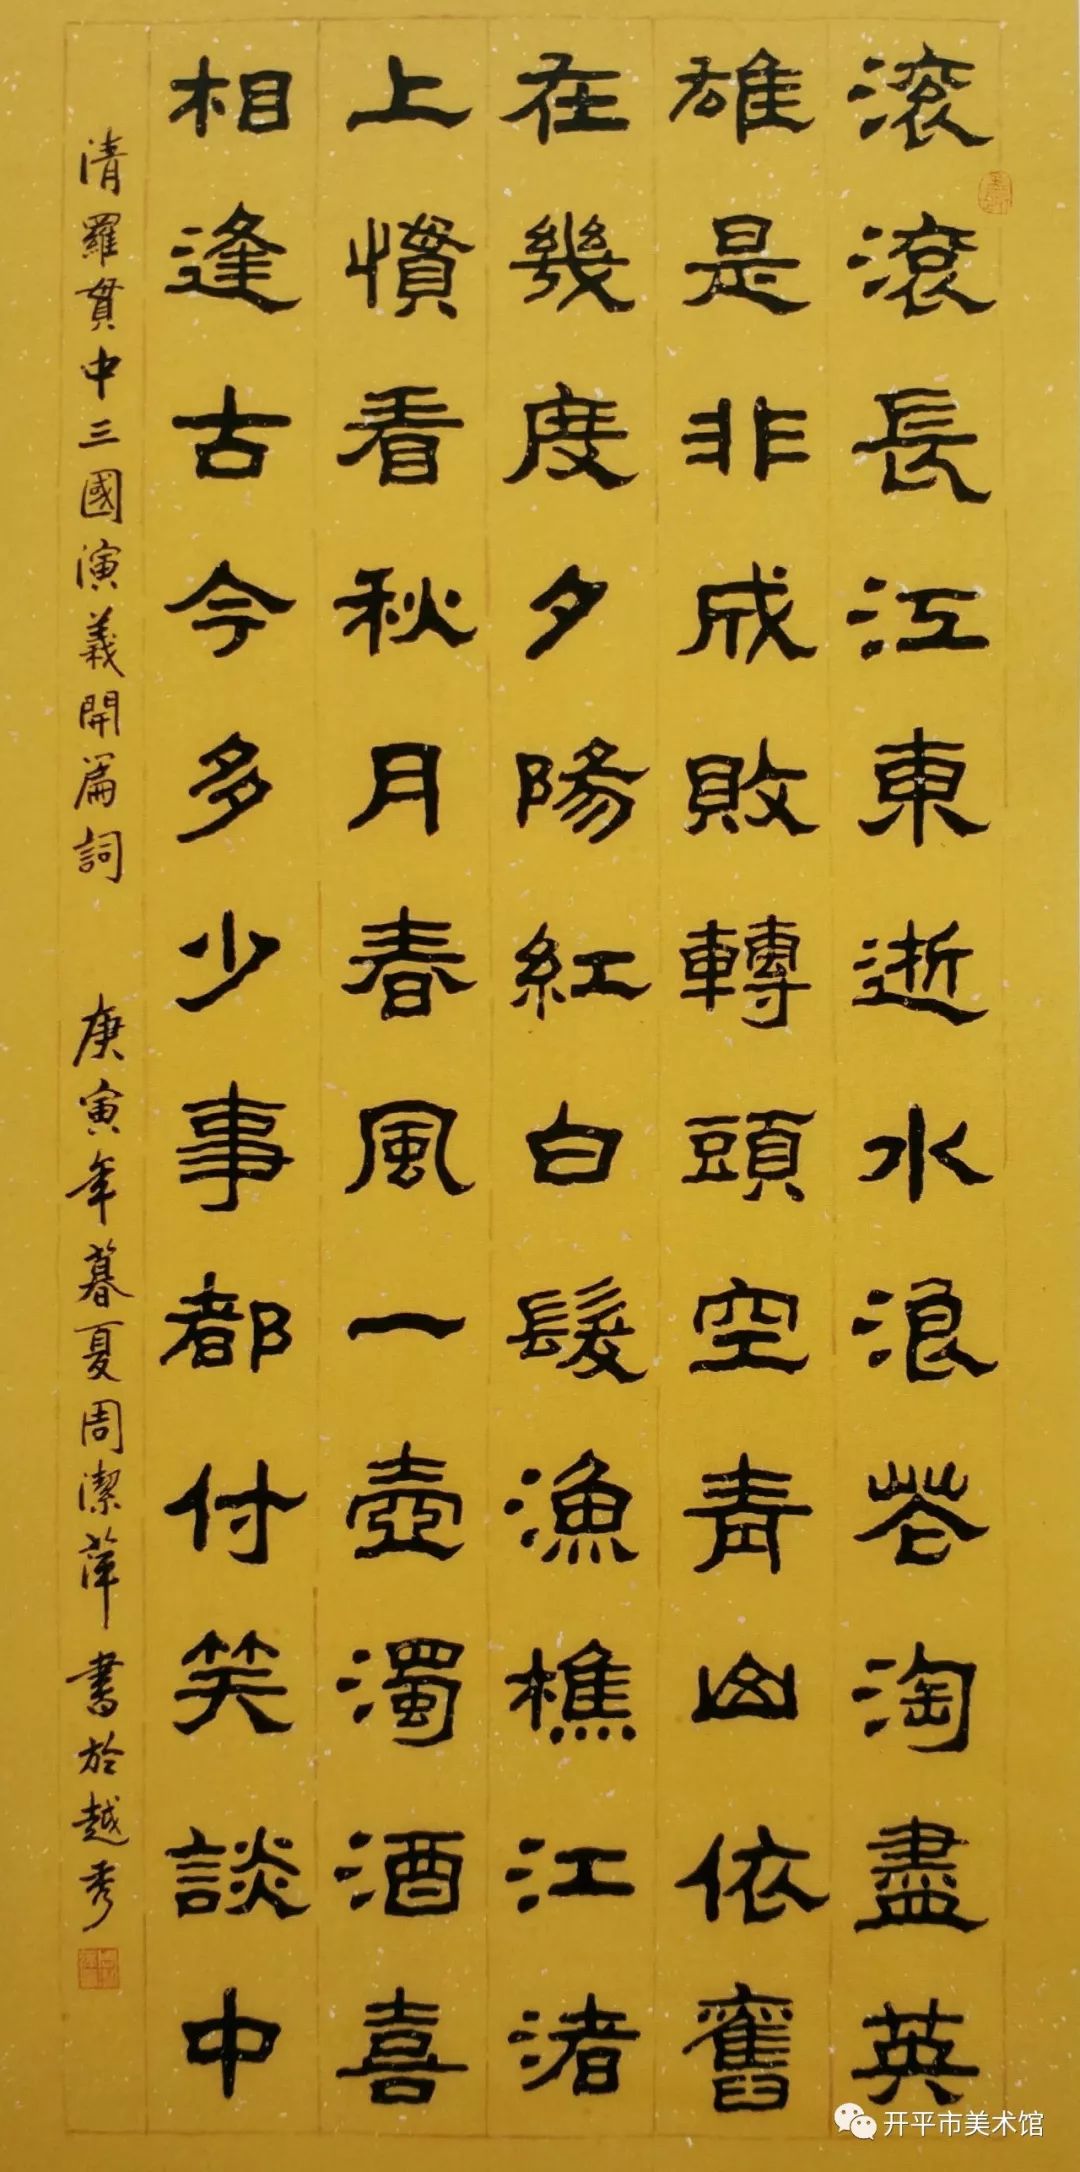 滚滚長江東逝水浪花淘盡英
雄是非成敗轉頭空青山依舊
在幾度夕陽紅白髮漁樵江渚
上慣看秋月春風一壺濁酒喜
相逢古今多少事都付笑談中
清羅貫中三國演義開篇詞 庚寅年暮夏周潔萍書於越秀
开平市美术馆